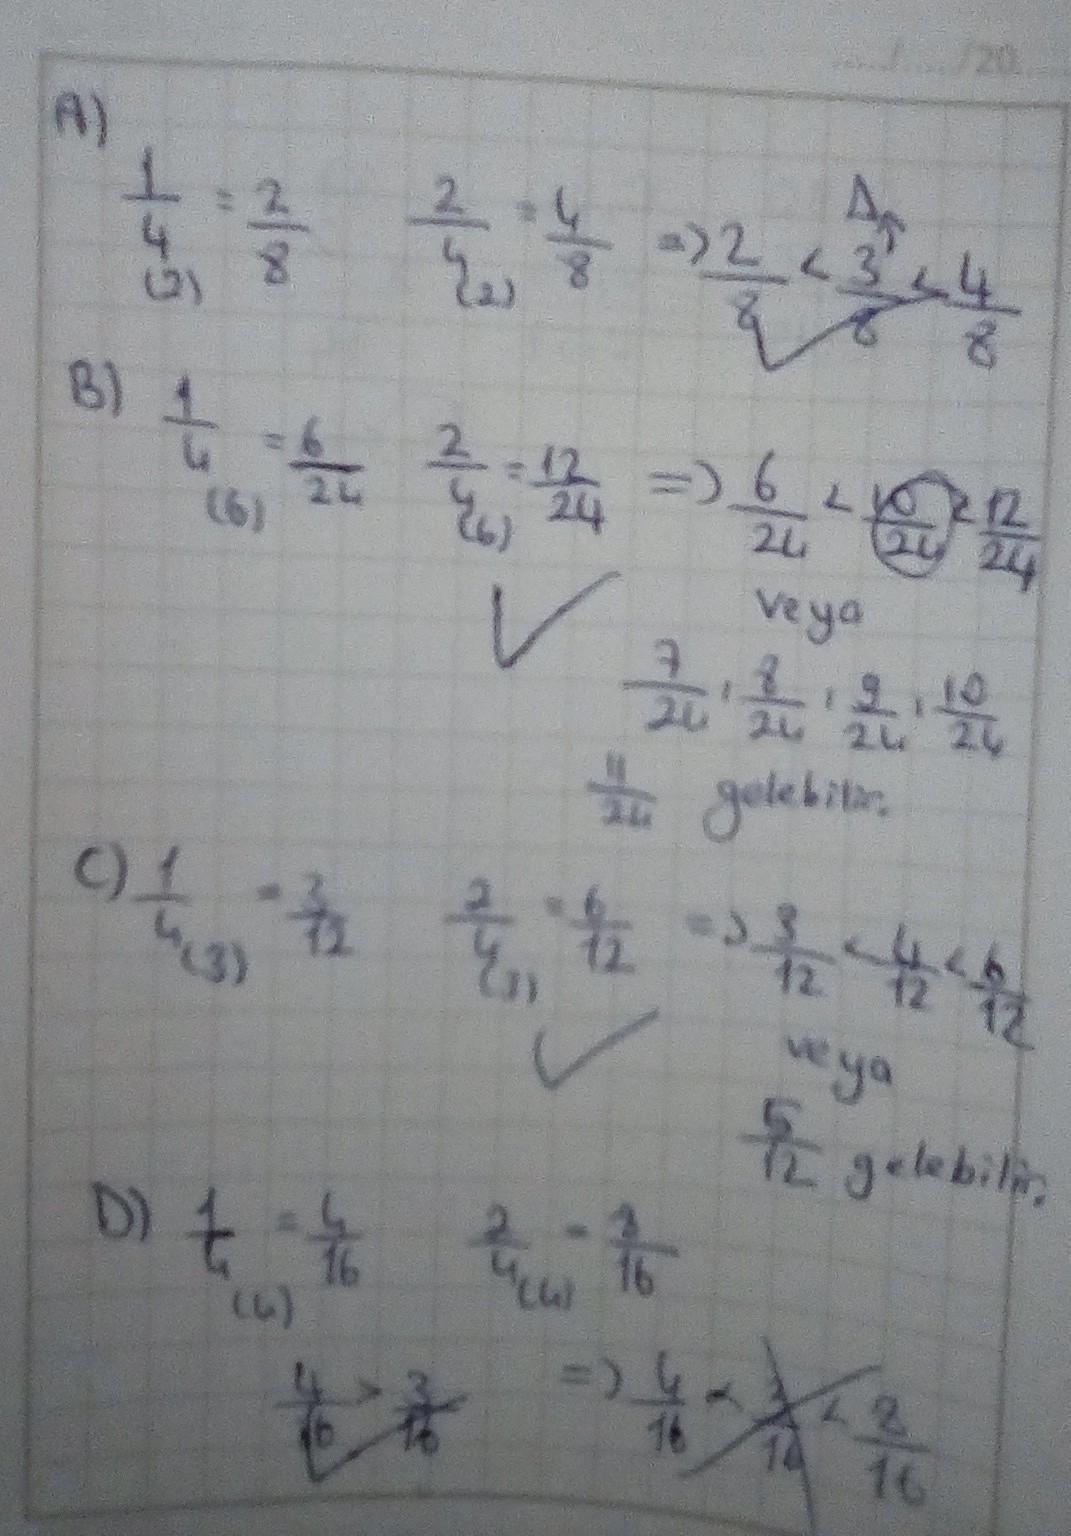 ..../..../20....
A)
1/4 (2) = 2/8   2/4 (2) = 4/8   => 2/8 < 3/8 < 4/8
Δ
B) 1/4 (6) = 6/24   2/4 (6) = 12/24   => 6/24 < 10/24 < 12/24
veya
7/24, 8/24, 9/24, 10/24
11/24 gelebilir.
C) 1/4 (3) = 3/12   2/4 (3) = 6/12   => 3/12 < 4/12 < 6/12
veya
5/12 gelebilir.
D) 1/4 (4) = 4/16   2/4 (4) = 8/16
4/16 > 3/16   => 4/16 < 3/16 < 8/16